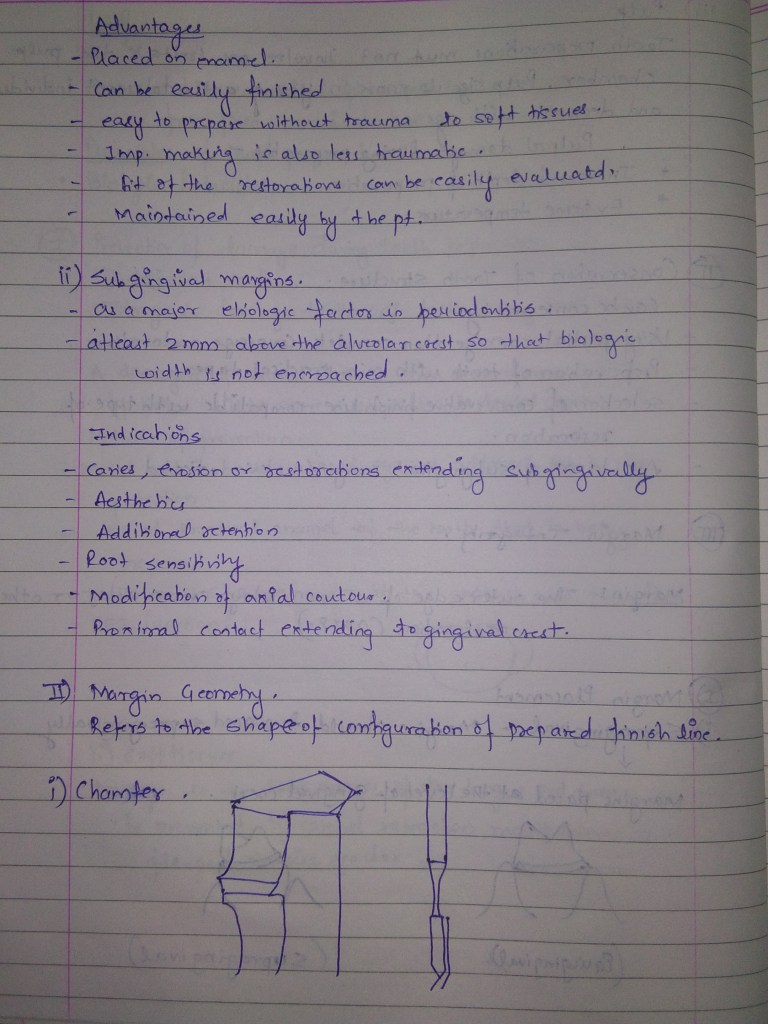 Advantages
- Placed on enamel.
- Can be easily finished
- easy to prepare without trauma to soft tissues.
- Imp. making is also less traumatic.
- fit of the restorations can be easily evaluatd.
- Maintained easily by the pt.
ii) Subgingival margins.
- as a major etiologic factor in periodontitis.
- atleast 2mm above the alveolar crest so that biologic
width is not encroached.
Indications
- Caries, erosion or restorations extending subgingivally
- Aesthetics
- Additional retention
- Root sensitivity
- Modification of axial contour.
- Proximal contact extending to gingival crest.
II) Margin Geometry.
Refers to the shape of configuration of prepared finish line.
i) Chamfer.